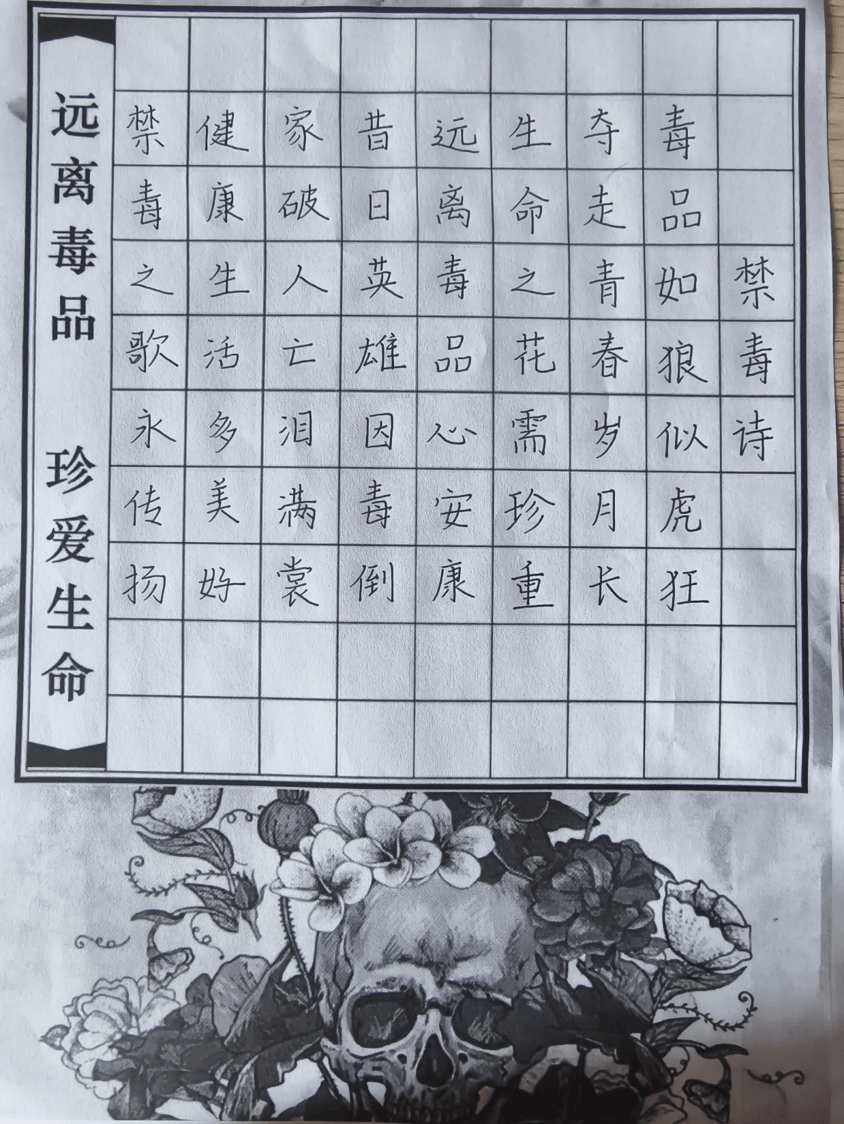 禁毒诗
毒品如狼似虎狂
夺走青春岁月长
生命之花需珍重
远离毒品心安康
昔日英雄因毒倒
家破人亡泪满裳
健康生活多美好
禁毒之歌永传扬
远离毒品 珍爱生命